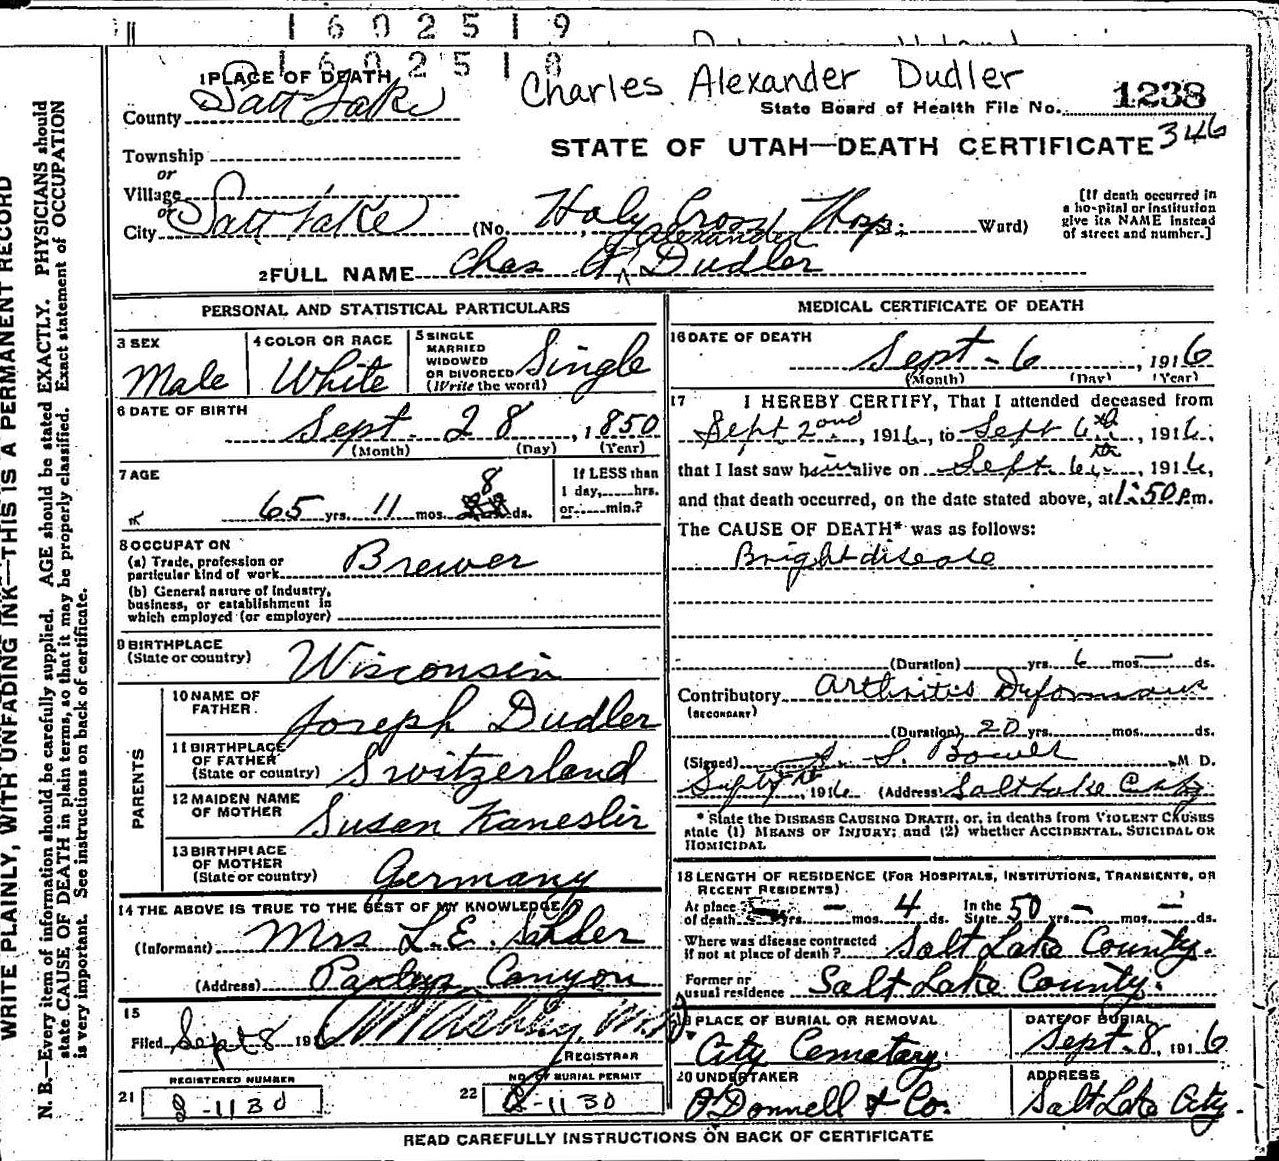 1602519
1602518
Charles Alexander Dudler
1 PLACE OF DEATH
County Salt Lake
State Board of Health File No. 1238
346
STATE OF UTAH—DEATH CERTIFICATE
Township
or
Village
or
City Salt Lake (No. Holy Cross Hosp. Ward)
[If death occurred in
a hospital or institution
give its NAME instead
of street and number.]
Alexander
2 FULL NAME Chas A Dudler
PERSONAL AND STATISTICAL PARTICULARS
3 SEX
Male
4 COLOR OR RACE
White
5 SINGLE
MARRIED
WIDOWED
OR DIVORCED
(Write the word)
Single
6 DATE OF BIRTH
Sept. 28, 1850
(Month) (Day) (Year)
7 AGE
65 yrs. 11 mos. 8 ds.
If LESS than
1 day, hrs.
or min.?
8 OCCUPATION
(a) Trade, profession or
particular kind of work Brewer
(b) General nature of Industry,
business, or establishment in
which employed (or employer)
9 BIRTHPLACE
(State or country) Wisconsin
PARENTS
10 NAME OF
FATHER Joseph Dudler
11 BIRTHPLACE
OF FATHER
(State or country) Switzerland
12 MAIDEN NAME
OF MOTHER Susan Kaneslir
13 BIRTHPLACE
OF MOTHER
(State or country) Germany
14 THE ABOVE IS TRUE TO THE BEST OF MY KNOWLEDGE
(Informant) Mrs L.E.
(Address) Canyon
15
Filed Sept 8 1916
REGISTRAR
REGISTERED NUMBER
21 8-1130
NO. OF BURIAL PERMIT
22 8-1130
MEDICAL CERTIFICATE OF DEATH
16 DATE OF DEATH
Sept-6, 1916
(Month) (Day) (Year)
17 I HEREBY CERTIFY, That I attended deceased from
Sept 2nd, 1916, to Sept 6th, 1916,
that I last saw him alive on Sept 6th, 1916,
and that death occurred, on the date stated above, at 1:50 P.m.
The CAUSE OF DEATH* was as follows:
Bright disease
(Duration) yrs. 6 mos. — ds.
Contributory Arthritis Deformans
(SECONDARY)
(Duration) 20 yrs. mos. ds.
(Signed) A. S. Bower M. D.
1916 (Address) Salt Lake City
* State the DISEASE CAUSING DEATH, or, in deaths from VIOLENT CAUSES
state (1) MEANS OF INJURY; and (2) whether ACCIDENTAL, SUICIDAL OR
HOMICIDAL
18 LENGTH OF RESIDENCE (FOR HOSPITALS, INSTITUTIONS, TRANSIENTS, OR
RECENT RESIDENTS)
At place
of death yrs. — mos. 4 ds. In the State 50 yrs. — mos. — ds.
Where was disease contracted
if not at place of death? Salt Lake County.
Former or
usual residence Salt Lake County.
19 PLACE OF BURIAL OR REMOVAL
City Cematary
DATE OF BURIAL
Sept-8, 1916
20 UNDERTAKER
O'Donnell & Co.
ADDRESS
Salt Lake City.
READ CAREFULLY INSTRUCTIONS ON BACK OF CERTIFICATE
WRITE PLAINLY, WITH UNFADING INK—THIS IS A PERMANENT RECORD
N. B.—Every item of information should be carefully supplied. AGE should be stated EXACTLY. PHYSICIANS should
state CAUSE OF DEATH in plain terms, so that it may be properly classified. Exact statement of OCCUPATION
is very important. See instructions on back of certificate.